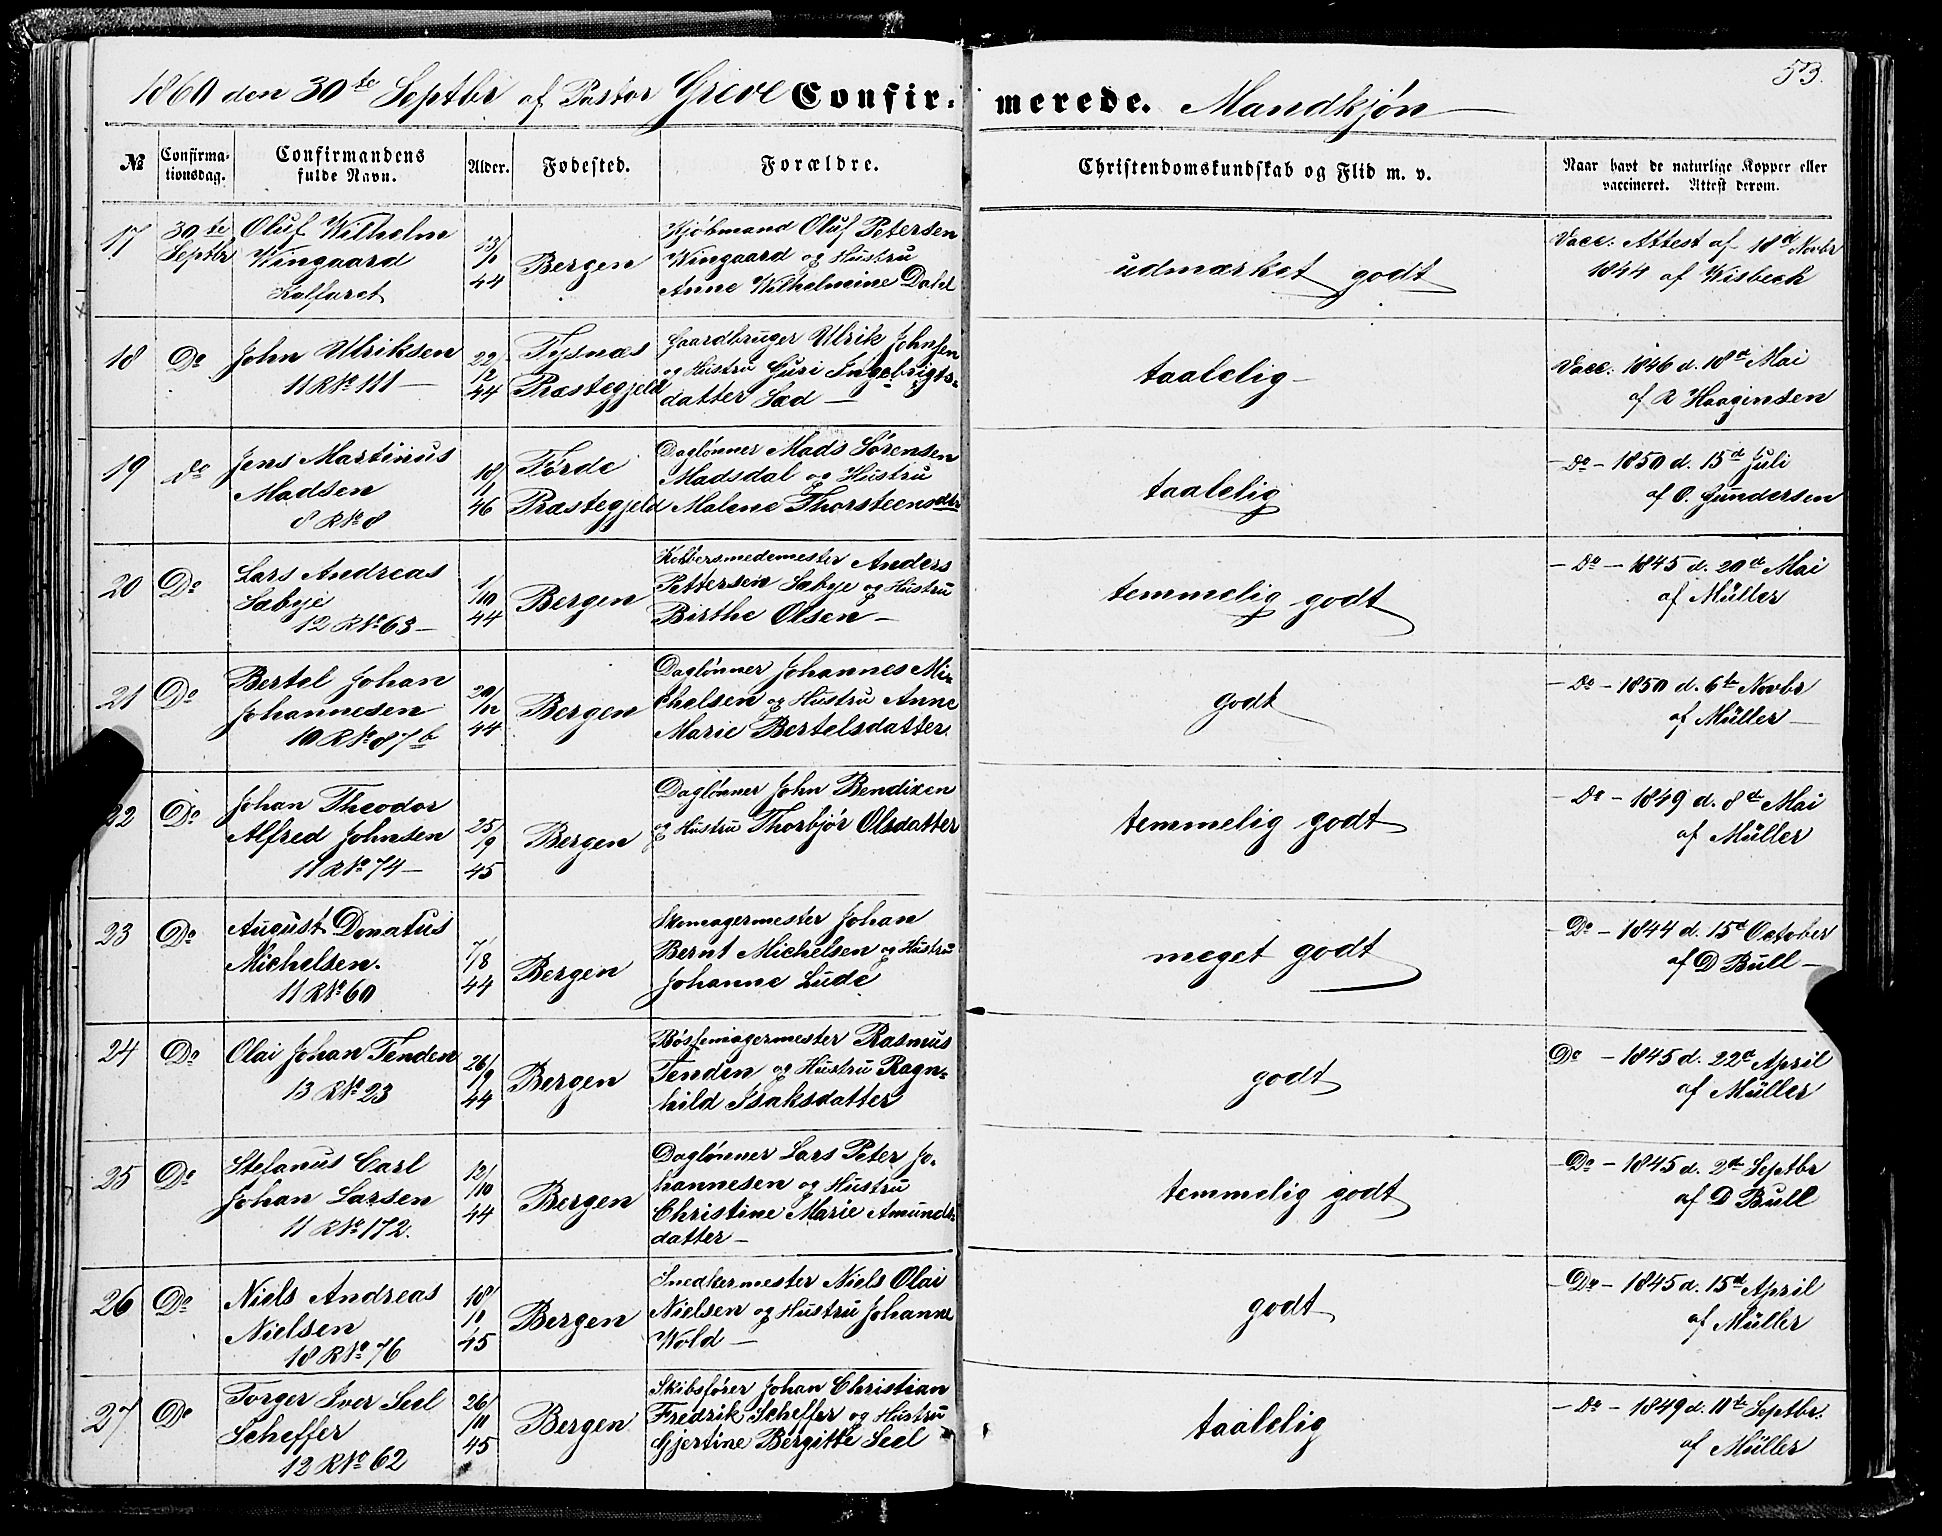 1860 den 30te Septbr af Pastor Greve Confir-merede. Mandkjøn
53.
№ Confirma-tionsdag. Confirmandens fulde Navn. Alder. Fødested. Forældre. Christendomskundskab og Flid m. v. Naar havt de naturlige Kopper eller vaccineret. Attest derom.
17 30te Oluf Wilhelm Kjøbmand Oluf Petersen Vacc. Attest af 18d Novbr
Septbr Wingaard Bergen Wingaard og Hustru udmærket godt 1844 af Wisbech
Kalfaret 44 Anne Wilhelmine Dahl
18 Do John Ulriksen 22/ Tysnæs Gaardbruger Ulrik Johnsen taalelig Vacc. 1846 d. 18d Mai
11 R No 111 12 Præstegjeld og Hustru Guri Ingebrigts- af R Haagensen
44 datter Sæd
19 do Jens Martinus 18/ Førde Daglønner Mads Sørensen taalelig Do 1850 d. 15d Juli
Madsen 11 Præstegjeld Madsdal og Hustru af O. Gundersen
8 R No 8 46 Malene Thorsteensdtr
20 Do Lars Andreas 1/ Bergen Kobbersmedemester Anders temmelig godt Do 1845 d. 20d Mai
Sæbye 10 Pettersen Sæbye og Hustru af Müller
12 R No 63 44 Birthe Olsen
21 Do Bertel Johan 20/ Bergen Daglønner Johannes Mi- godt Do 1850 d. 6te Novbr
Johannesen 12 chelsen og Hustru Anne af Müller
10 R No 87b 44 Marie Bertelsdatter
22 Do Johan Theodor 25/ Bergen Daglønner John Bendixen temmelig godt Do 1849 d. 8d Mai
Alfred Johnsen 9 og Hustru Thorbjør Olsdatter af Müller
11 R No 74 45
23 Do August Donatus 7/ Bergen Skomagermester Johan meget godt Do 1844 d. 15d October
Michelsen. 8 Bernt Michelsen og Hustru af D Bull
11 R No 60 44 Johanne Lude
24 Do Olai Johan Tenden 26/ Bergen Bøssemagermester Rasmus godt Do 1845 d. 22d April
13 R No 23 9 Tenden og Hustru Ragn- af Müller
44 hild Isaksdatter
25 Do Stefanus Carl 12/ Bergen Daglønner Lars Peter Jo- temmelig godt Do 1845 d. 2den Septbr
Johan Larsen 10 hannesen og Hustru af D Bull
11 R No 172. 44 Christine Marie Amunds-
datter
26 Do Niels Andreas 18/ Bergen Snedkermester Niels Olai godt Do 1845 d. 15d April
Nielsen 11 Nielsen og Hustru Johanne af Müller
18 R No 76 45 Wold
27 Do Torger Iver Seel 26/ Bergen Skibsfører Johan Christian taalelig Do 1849 d. 11te Septbr.
Scheffer 11 Fredrik Scheffer og Hustru af Müller
12 R No 62 45 Gjertine Bergitte Seel